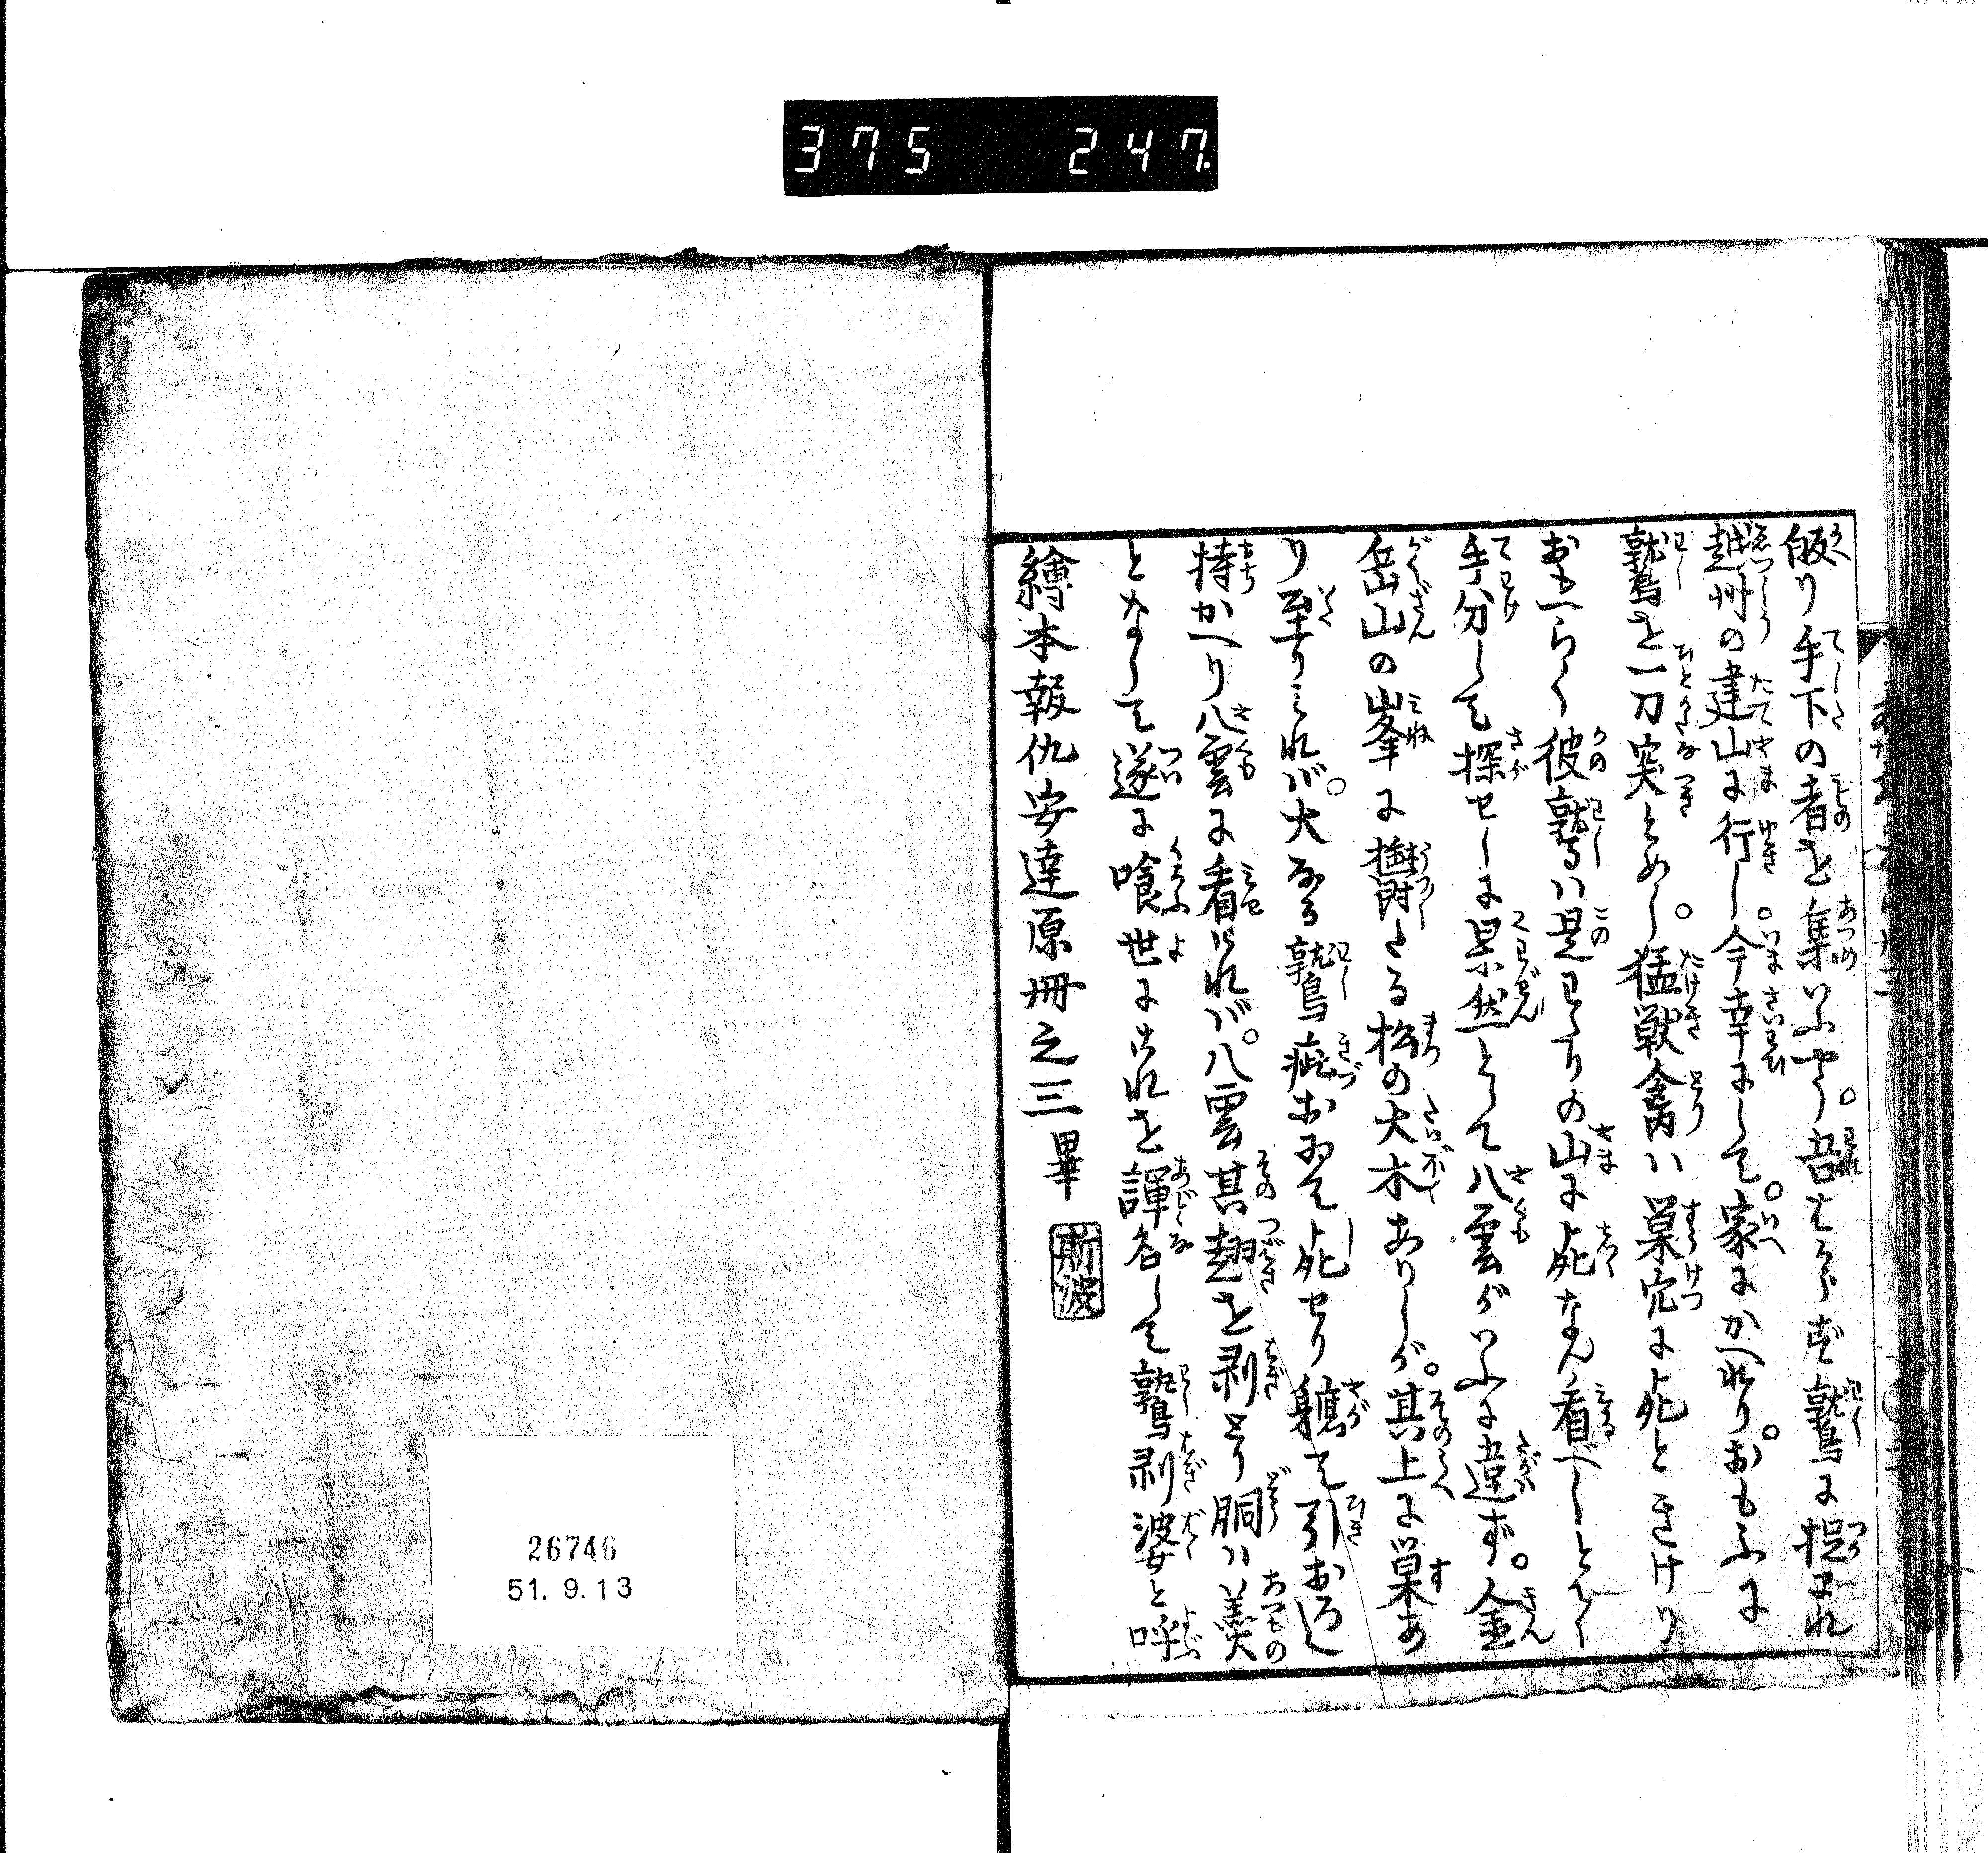 375 247.
皈り手下の者を集いふやう。吾はからず鷲に捉られ
越州の建山に行し。今幸にして。家にかへれり。おもふに
鷲を一刀突とめし。猛獣禽ハ巣穴に死ときけり
おもへらく彼鷲ハ是わたりの山に死なん看べしとて
手分して探せしに果然として八雲がいふに違ず。金
岳山の峯に橅附たる松の大木ありしが。其上に巣あ
り至りみれバ。大なる鷲疵おゐて死せり軈て引おろし
持かへり八雲に看けれバ。八雲其翅を剥とり胴ハ羹
となして遂に喰世にこれを諢名して鷲剥婆と呼
繪本報仇安達原冊之三畢
斯波
26746
51.9.13